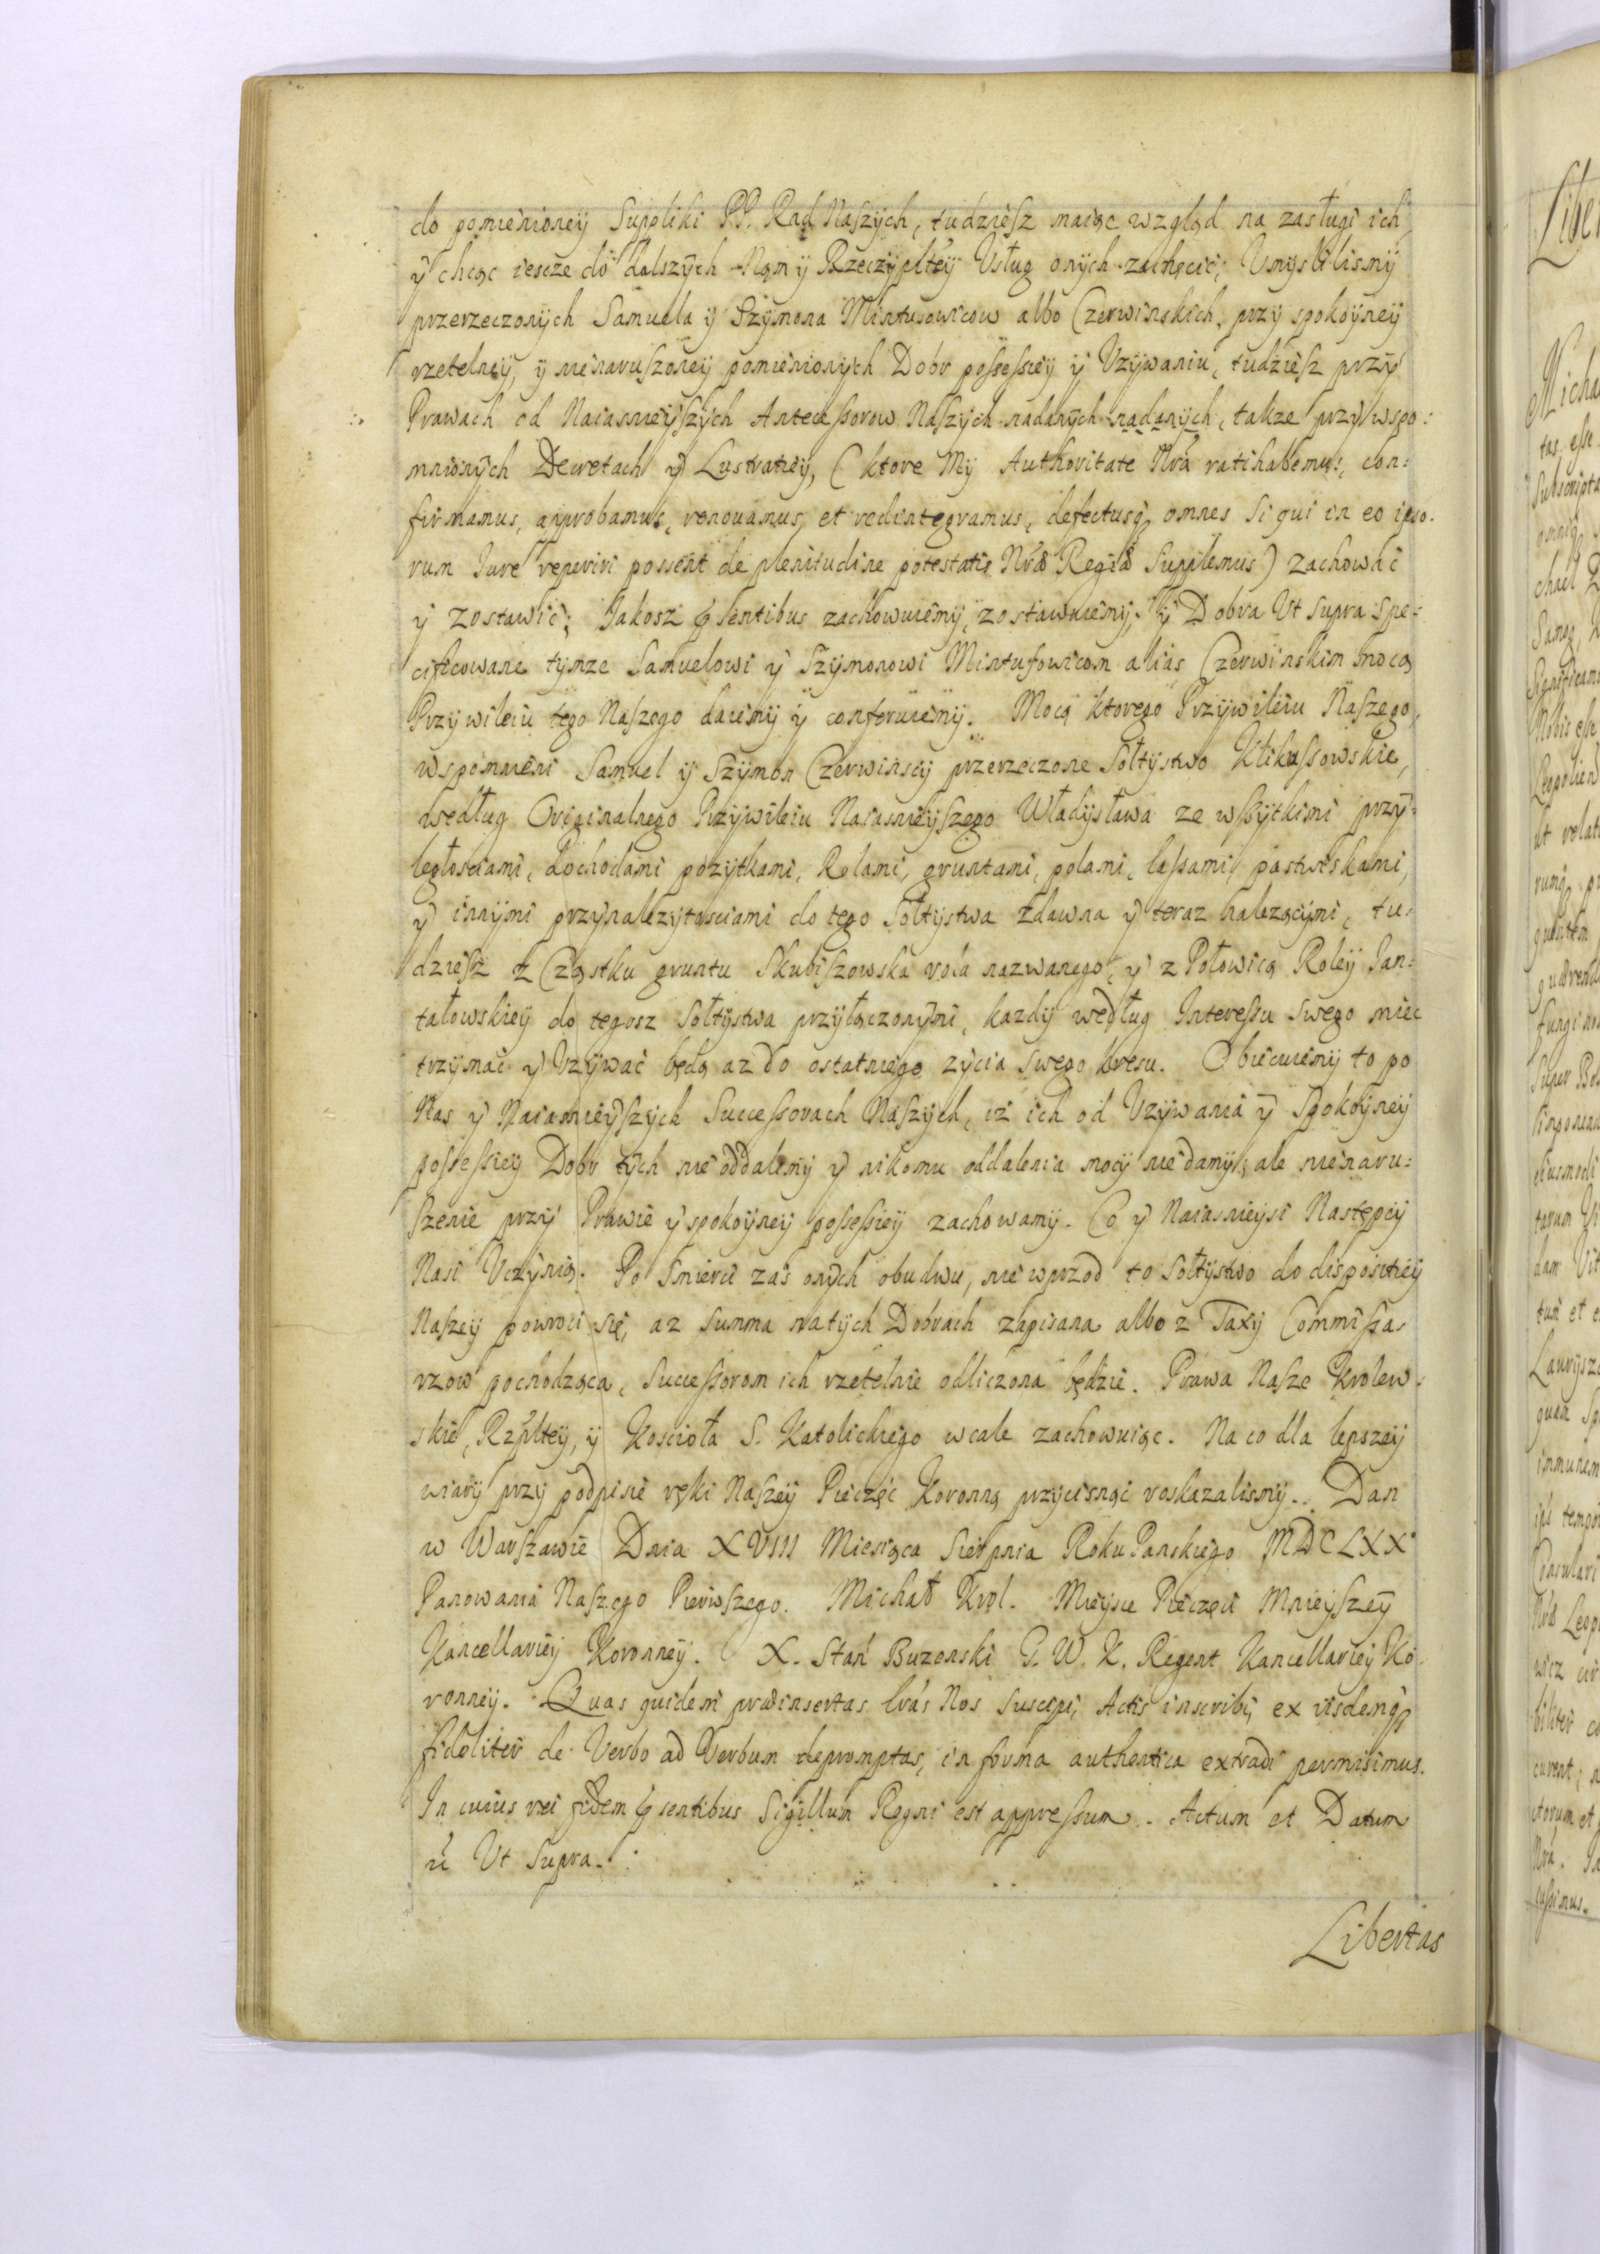 do pomienioney Suppliki PP. Rad Naszych, tudziesz maiąc wzgląd na zasługi ich
y chcąc iescze do dalszych Nam y Rzeczyplţey Usług onych zachęcić; Umyslilismy
przerzeczonych Samuela y Szymona Mintusowicow albo Czerwinskich, przy spokoyney
rzetelney, y nienaruszoney pomienionych Dobr possessiey y Uzywaniu, tudziesz przy
Prawach od Naiasnieyszych Antecessorow Naszych nadanych nadanych, takze przy wspo:
mnionych Decretach y Lustratiey, (ktore My Authoritate Nra ratihabemus, con:
firmamus, approbamus, renouamus, et redintegramus, defectusq omnes si qui in eo ipso:
rum Iure reperiri possent de plenitudine potestatis Nræ Regiæ Supplemus) zachować
y zostawić; Jakosz psentibus zachowuiemy, zostawuiemy, y Dobra Ut supra spe:
cificowane tymze Samuelowi y Szymonowi Mintusowicom alias Czerwinskim mocą
Przywileiu tego Naszego daiemy y conferuiemy. Mocą ktorego Przywileiu Naszego,
wspomnieni Samuel y Szymon Czerwinscy przerzeczone Sołtystwo Klikussowskie,
według Originalnego Przywileiu Naiasnieyszego Władysława ze wszytkimi przy:
ległosciami, dochodami pozytkami, Rolami, gruntami, polami, lassami, pastwiskami,
y innymi przynalezytosciami do tego Sołtystwa zdawna y teraz nalezącymi, tu:
dziesz z Cząstką gruntu Skubiszowska rola nazwanego, y z Połowicą Roley Jan:
tałowskiey do tegosz Sołtystwa przyłączonymi, kazdy według Interessu swego miec
trzymać y Uzywać będą az do ostatniego zycia swego kresu. Obiecuiemy to po
Nas y Naiasnieyszych Successorach Naszych, iz ich od Uzywania y Spokoyney
possessiey Dobr tych nie oddalemy y nikomu oddalenia mocy nie damy; ale nienaru:
szenie przy Prawie y spokoyney possessiey zachowamy. Co y Naiasnieysi Następcy
Nasi Uczynią. Po Smierci zaś onych obudwu, nie wprzod to Sołtystwo do dispositiey
Naszey powroci się, az Summa na tych Dobrach zapisana albo z Taxy Commissa:
rzow pochodząca, Successorom ich rzetelnie odliczona będzie. Prawa Nasze Krolew:
skie, Rzpltey, y Koscioła S. Katolickiego wcale zachowuiąc. Na co dla lepszey
wiary przy podpisie ręki Naszey Pieczęć Koronną przycisnąć roskazalismy. Dan
w Warszawie Dnia XVIII Miesiąca Sierpnia Roku Panskiego MDCLXX
Panowania Naszego Pierwszego. Michał Krol. Mieysce Pieczęci Mnieyszey
Kancellariey Koronney. X. Stan Buzenski G. W. K. Regent Kancellariey Ko:
ronney. Quas quidem præinsertas lras Nos suscipi, Actis inscribi, ex iisdemq
fideliter de Verbo ad Verbum depromptas, in forma authentica extradi permisimus.
In cuius rei fidem psentibus Sigillum Regni est appressum. Actum et Datum
Ut Supra.
Libertas